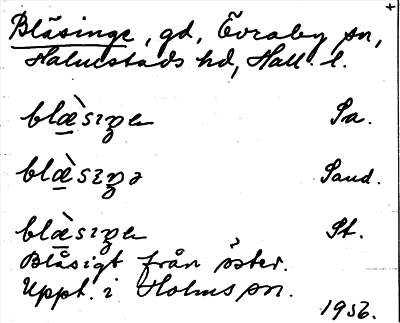 Bläsinge, gd, Övraby sn,
Halmstads hd, Hall. l.
blæ̀sıŋɐ Sa.
blæ̀sıŋə Sand.
blæ̀sıŋɐ St.
Blåsigt från öster.
Uppt. i Holms sn.
1956.